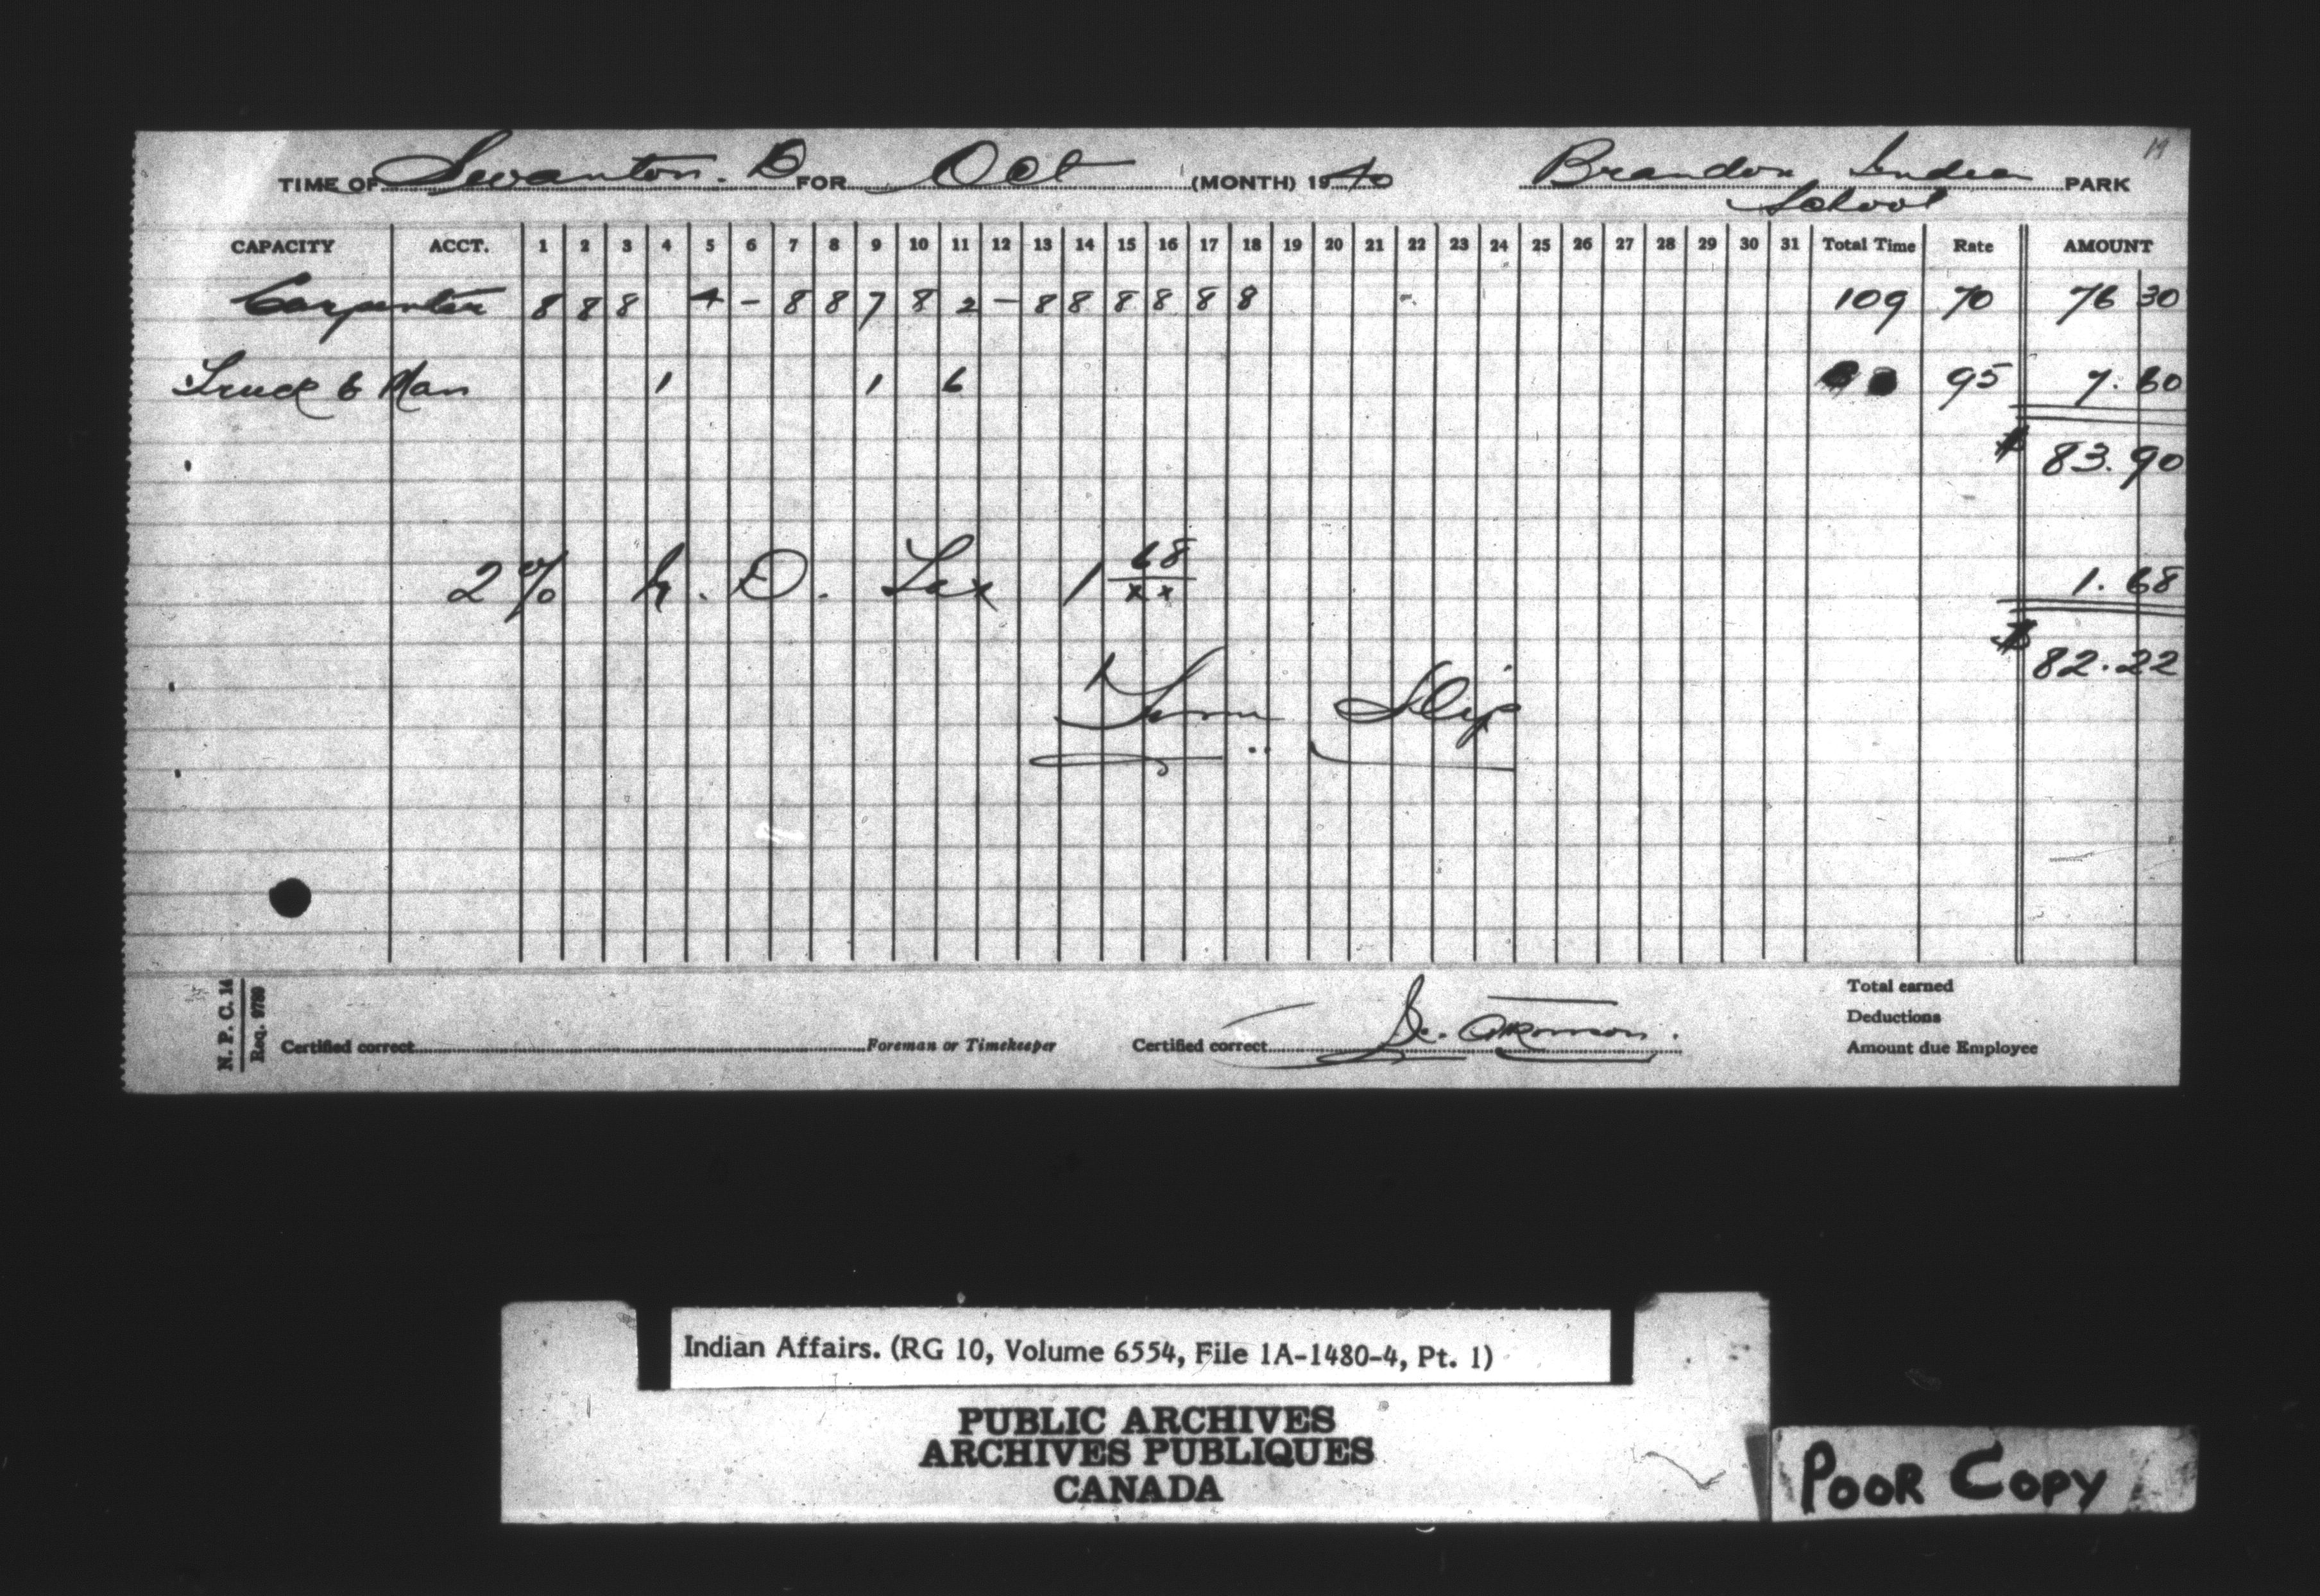 19
TIME OF Swanton. B FOR Oct (MONTH) 1940 Brandon Indian School PARK
CAPACITY ACCT. 1 2 3 4 5 6 7 8 9 10 11 12 13 14 15 16 17 18 19 20 21 22 23 24 25 26 27 28 29 30 31 Total Time Rate AMOUNT
Carpenter 8 8 8 4 - 8 8 7 8 2 - 8 8 8 8 8 8 109 70 76 30
Truck & Man 1 1 6 95 7.60
$ 83.90
2% N. D. Tax 1 68/xx 1.68
$ 82.22
Time Slip
N. P. C. 14
Req. 9789
Certified correct Foreman or Timekeeper Certified correct
Total earned
Deductions
Amount due Employee
Indian Affairs. (RG 10, Volume 6554, File 1A-1480-4, Pt. 1)
PUBLIC ARCHIVES
ARCHIVES PUBLIQUES
CANADA
POOR COPY